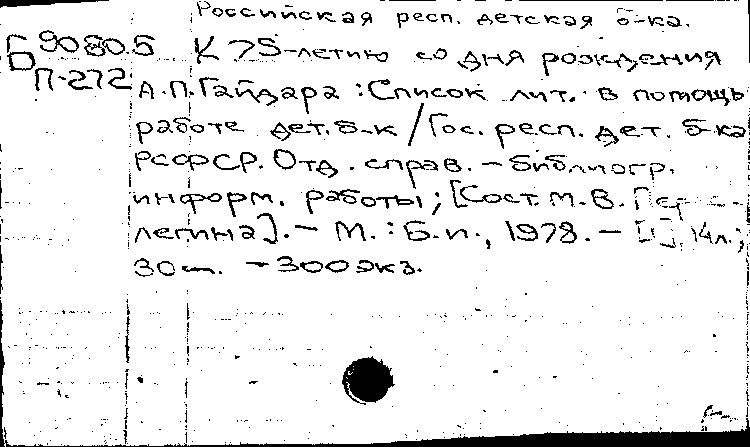 Российская респ. детская б-ка.
Б 90805 К 75-летию со дня рождения
П-272 А.П. Гайдара : Список лит. в помощь
работе дет. б-к / Гос. респ. дет. б-ка
РСФСР. Отд. справ. - библиогр.
информ. работы; [Сост. М.В.
легина]. - М. : Б.и., 1978. - [1], 14 л.;
30 см. - 300 экз.